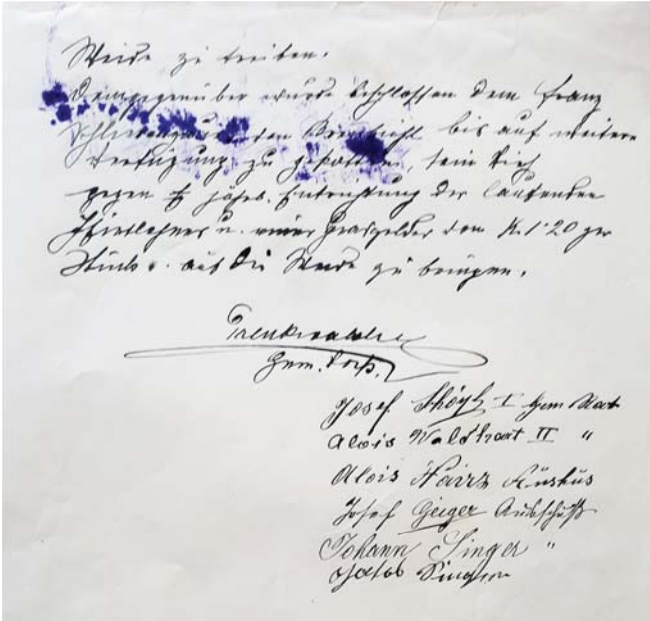 Weide zu treiben.
Demgegenüber wurde beschlossen dem Franz
den bis auf weitere
Verfügung zu gestatten, sein Vieh
gegen jährl. Entrichtung der laufenden
Hirtlohnes u. eines Grasgeldes von K. 1·20 per
Stück auf die Weide zu bringen.
Trenkwalder
Gem. Vorst.
Josef I Gem Rat
Alois Waldhart II "
Alois Nairz
Josef Geiger Ausschuß
Johann Singer "
Jakob Singer